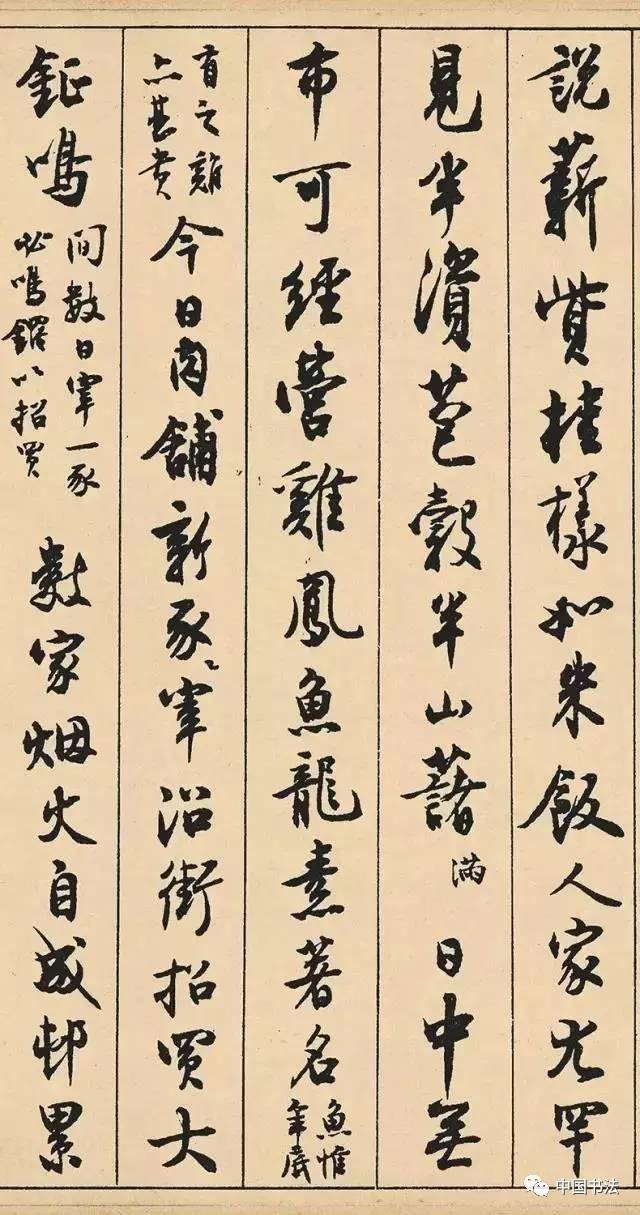 說薪貲桂樣和米飯人家尤罕
見半苞穀半山藷滿日中無
布可經營雞鳳魚龍素著名魚惟年底
有之雞亦甚貴今日肉舖新豕宰沿街招買大
鉦鳴間數日宰一豕必鳴鑼以招買數家烟火自成邨累
中国书法